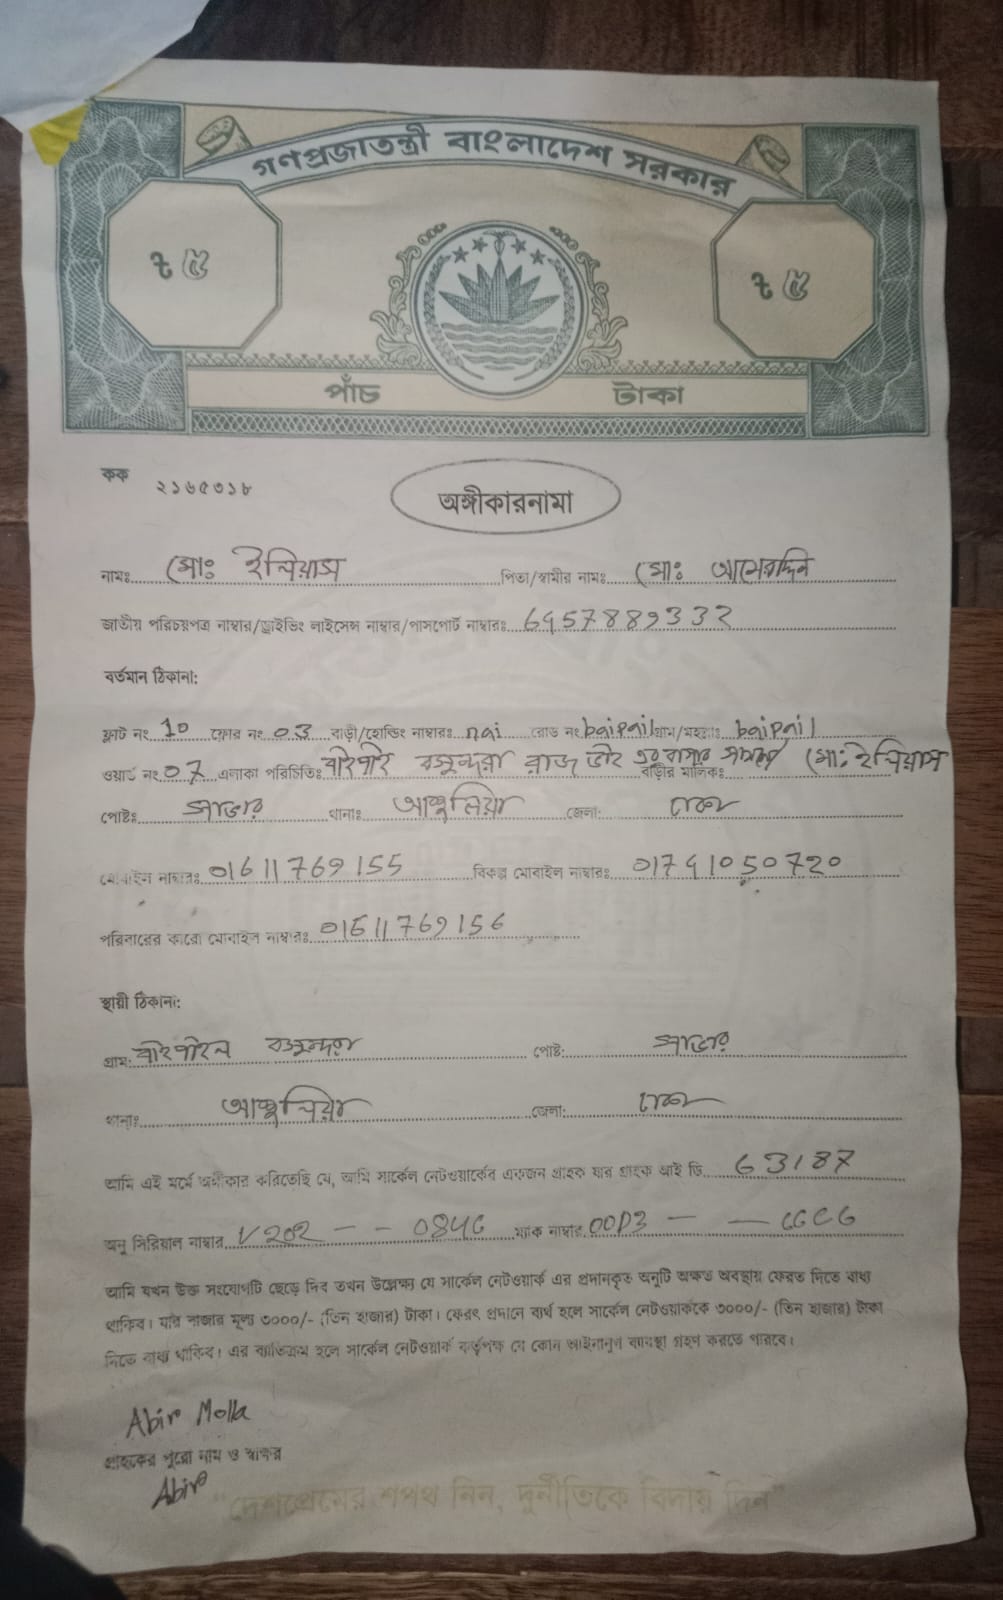 গণপ্রজাতন্ত্রী বাংলাদেশ সরকার
৳ ৫ ৳ ৫
পাঁচ টাকা
কক ২১৬৫৩১৮
অঙ্গীকারনামা
নামঃ মোঃ ইলিয়াস পিতা/স্বামীর নামঃ মোঃ আমেরদ্দিন
জাতীয় পরিচয়পত্র নাম্বার/ড্রাইভিং লাইসেন্স নাম্বার/পাসপোর্ট নাম্বারঃ 6457889332
বর্তমান ঠিকানা:
ফ্লাট নং 10 ফ্লোর নং 03 বাড়ী/হোল্ডিং নাম্বারঃ nai রোড নং baipail গ্রাম/মহল্লাঃ baipail
ওয়ার্ড নং 07 এলাকা পরিচিতিঃ বসুন্দরা রাজ বাড়ীর মালিকঃ মোঃ ইলিয়াস
পোষ্টঃ সাভার থানাঃ আশুলিয়া জেলা: ঢাকা
মোবাইল নাম্বারঃ 01611769155 বিকল্প মোবাইল নাম্বারঃ 01741050720
পরিবারের কারো মোবাইল নাম্বারঃ 01611769156
স্থায়ী ঠিকানা:
গ্রাম: বাইপাইল বসুন্দরা পোষ্ট: সাভার
থানাঃ আশুলিয়া জেলা: ঢাকা
আমি এই মর্মে অঙ্গীকার করিতেছি যে, আমি সার্কেল নেটওয়ার্কের একজন গ্রাহক যার গ্রাহক আই ডি 63187
অনু সিরিয়াল নাম্বার V202 - - 084C ম্যাক নাম্বার 00D3 - - CGCG
আমি যখন উক্ত সংযোগটি ছেড়ে দিব তখন উল্লেক্ষ্য যে সার্কেল নেটওয়ার্ক এর প্রদানকৃত অনুটি অক্ষত অবস্থায় ফেরত দিতে বাধ্য
থাকিব। যার বাজার মূল্য ৩০০০/- (তিন হাজার) টাকা। ফেরৎ প্রদানে ব্যর্থ হলে সার্কেল নেটওয়ার্ককে ৩০০০/- (তিন হাজার) টাকা
দিতে বাধ্য থাকিব। এর ব্যতিক্রম হলে সার্কেল নেটওয়ার্ক কর্তৃপক্ষ যে কোন আইনানুগ ব্যবস্থা গ্রহণ করতে পারবে।
Abir Molla
গ্রাহকের পুরো নাম ও স্বাক্ষর
Abir
"দেশপ্রেমের শপথ নিন, দুর্নীতিকে বিদায় দিন"